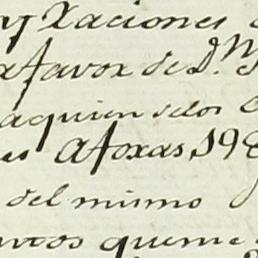 y Xaciones
afavor de D.ⁿ
aquien selos
es Aforas, 198
del mismo
queme